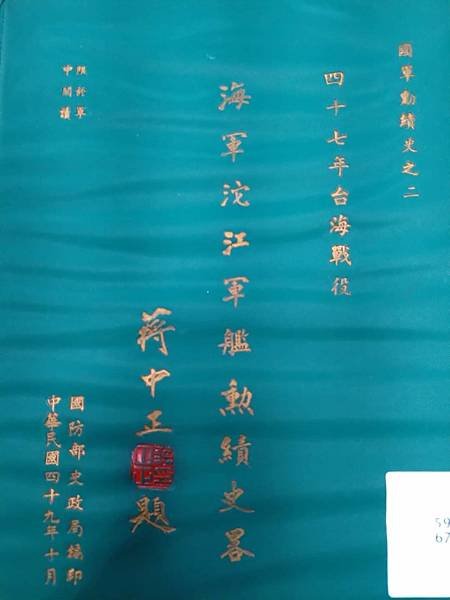 國軍勳績史之二
四十七年台海戰役
海軍沱江軍艦勳績史畧
蔣中正題
限於軍
中閱讀
國防部史政局編印
中華民國四十九年十月
59
67